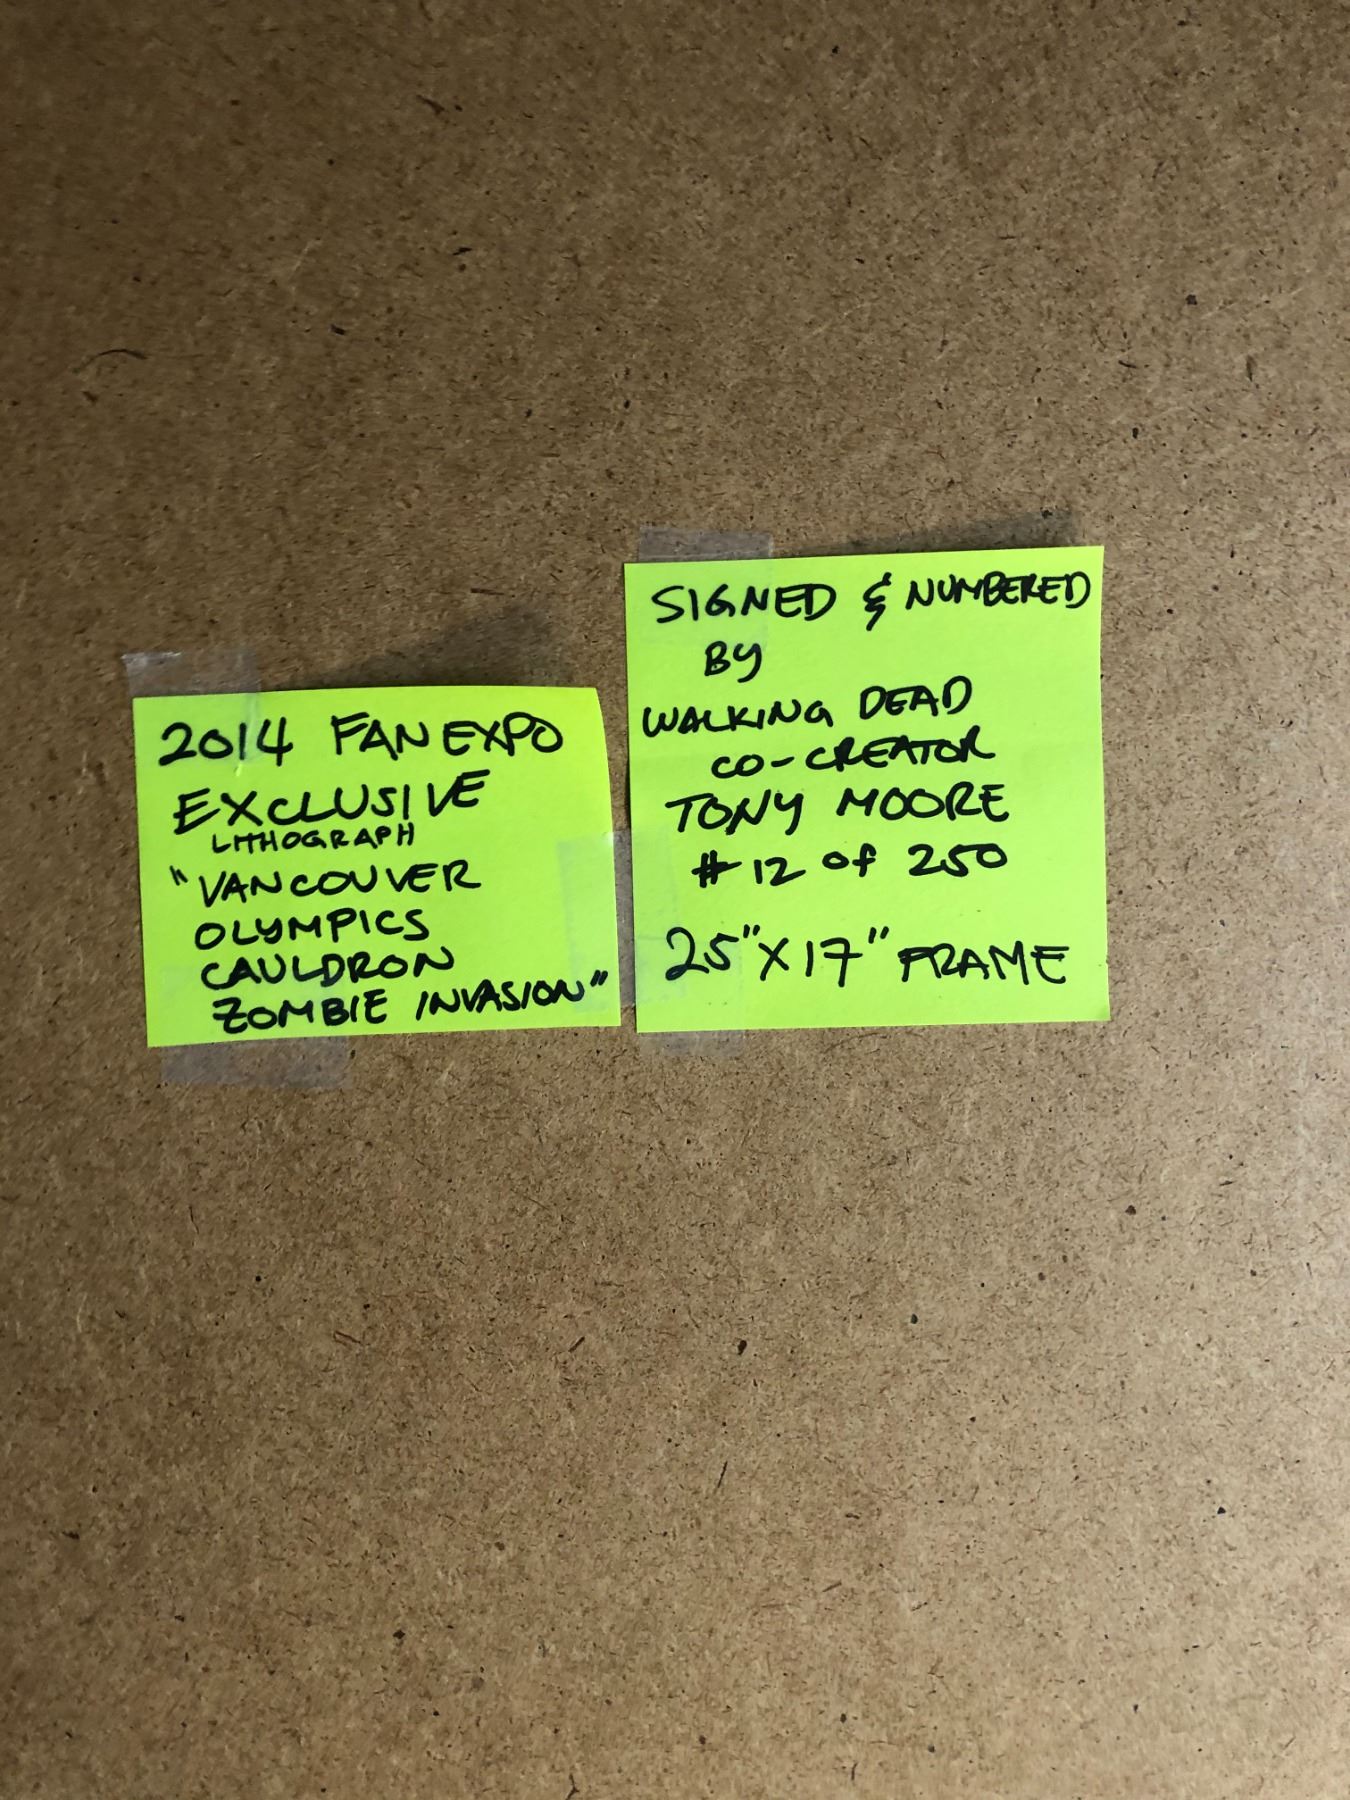 2014 FAN EXPO
EXCLUSIVE
LITHOGRAPH
"VANCOUVER
OLYMPICS
CAULDRON
ZOMBIE INVASION"
SIGNED & NUMBERED
BY
WALKING DEAD
CO-CREATOR
TONY MOORE
# 12 of 250
25" X 17" FRAME